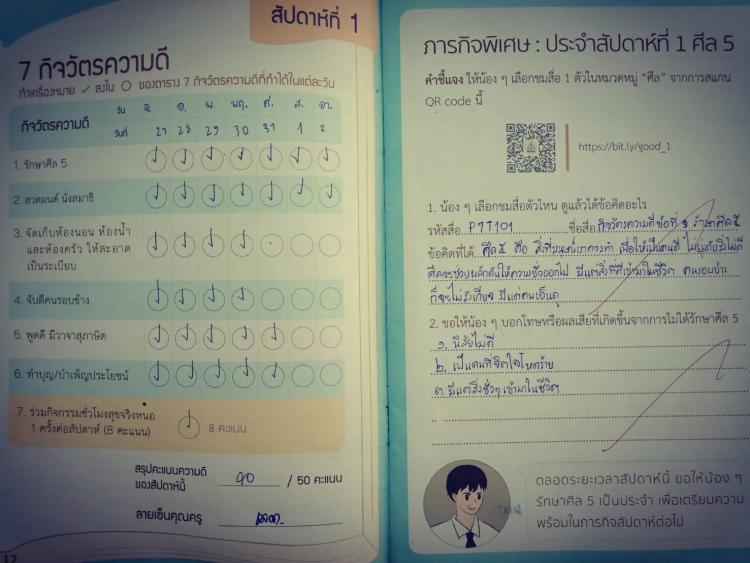 สัปดาห์ที่ 1
7 กิจวัตรความดี
ทำเครื่องหมาย ✓ ลงใน ○ ของตาราง 7 กิจวัตรความดีที่ทำได้ในแต่ละวัน
กิจวัตรความดี
วัน จ. อ. พ. พฤ. ศ. ส. อา.
วันที่ 27 28 29 30 31 1 2
1. รักษาศีล 5
2. สวดมนต์ นั่งสมาธิ
3. จัดเก็บห้องนอน ห้องน้ำ
และห้องครัว ให้สะอาด
เป็นระเบียบ
4. จับดีคนรอบข้าง
5. พูดดี มีวาจาสุภาษิต
6. ทำบุญ/บำเพ็ญประโยชน์
7. ร่วมกิจกรรมชั่วโมงสุขจริงหนอ
1 ครั้งต่อสัปดาห์ (8 คะแนน)
8 คะแนน
สรุปคะแนนความดี
ของสัปดาห์นี้
/ 50 คะแนน
ลายเซ็นคุณครู
12
ภารกิจพิเศษ : ประจำสัปดาห์ที่ 1 ศีล 5
คำชี้แจง ให้น้อง ๆ เลือกชมสื่อ 1 ตัวในหมวดหมู่ “ศีล” จากการสแกน
QR code นี้
https://bit.ly/good_1
1. น้อง ๆ เลือกชมสื่อตัวไหน ดูแล้วได้ข้อคิดอะไร
รหัสสื่อ PTT101 ชื่อสื่อ กิจวัตรความดีข้อที่ ๑ รักษาศีล ๕
ข้อคิดที่ได้ ศีล ๕ คือ สิ่งที่มนุษย์เราควรทำ เพื่อให้เป็นคนดี ไม่ยุ่งกับสิ่งไม่ดี
ศีลจะช่วยผลักดันให้ความชั่วออกไป มีแต่สิ่งที่ดีเข้ามาในชีวิต คนรอบข้าง
ก็จะไม่รังเกียจ มีแต่คนเอ็นดู
2. ขอให้น้อง ๆ บอกโทษหรือผลเสียที่เกิดขึ้นจากการไม่ได้รักษาศีล 5
๑. นิสัยไม่ดี
๒. เป็นคนที่จิตใจโหดร้าย
๓ มีแต่สิ่งชั่วๆ เข้ามาในชีวิต
ตลอดระยะเวลาสัปดาห์นี้ ขอให้น้อง ๆ
รักษาศีล 5 เป็นประจำ เพื่อเตรียมความ
พร้อมในภารกิจสัปดาห์ต่อไป